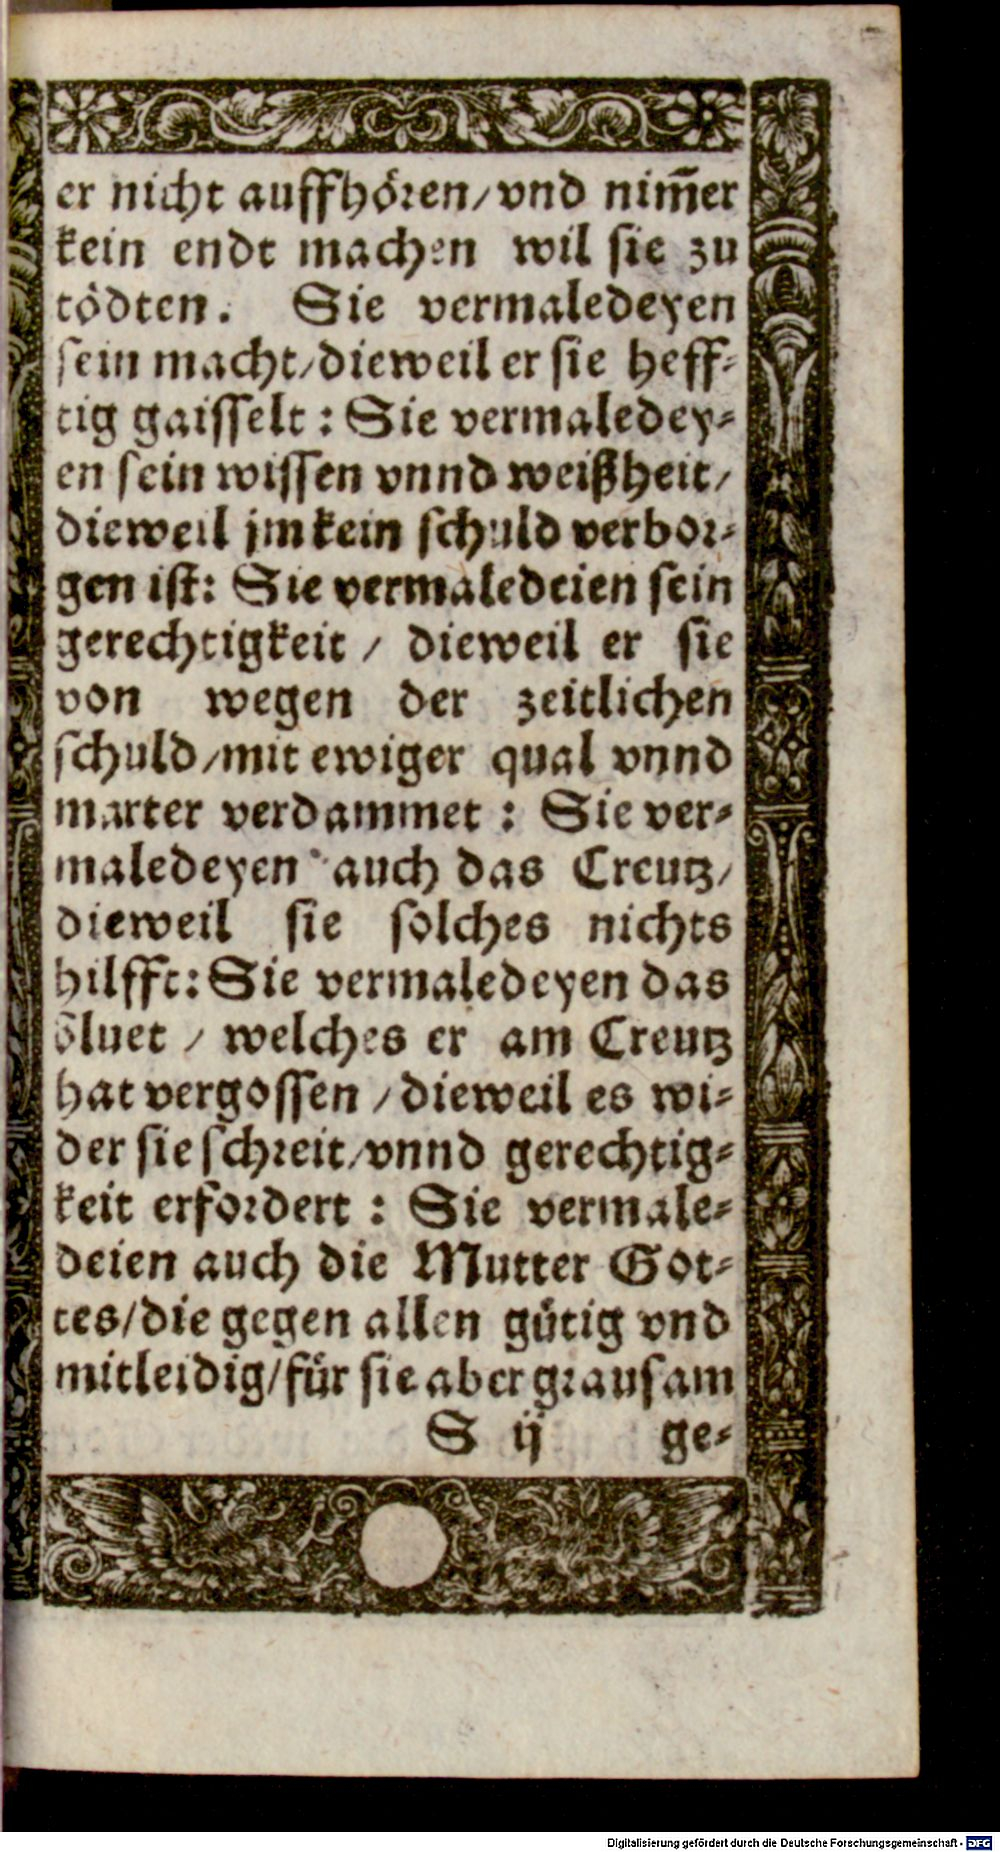 er nicht auffhören/vnd nim̃er
kein endt machen wil sie zu
tödten. Sie vermaledeyen
sein macht/dieweil er sie heff-
tig gaisselt: Sie vermaledey-
en sein wissen vnnd weißheit/
dieweil jm kein schuld verbor-
gen ist: Sie vermaledeien sein
gerechtigkeit / dieweil er sie
von wegen der zeitlichen
schuld/mit ewiger qual vnnd
marter verdammet: Sie ver-
maledeyen auch das Creutz/
dieweil sie solches nichts
hilfft: Sie vermaledeyen das
Bluet / welches er am Creutz
hat vergossen / dieweil es wi-
der sie schreit/vnnd gerechtig-
keit erfordert: Sie vermale-
deien auch die Mutter Got-
tes/die gegen allen gütig vnd
mitleidig/für sie aber grausam
S ij ge-
Digitalisierung gefördert durch die Deutsche Forschungsgemeinschaft - DFG